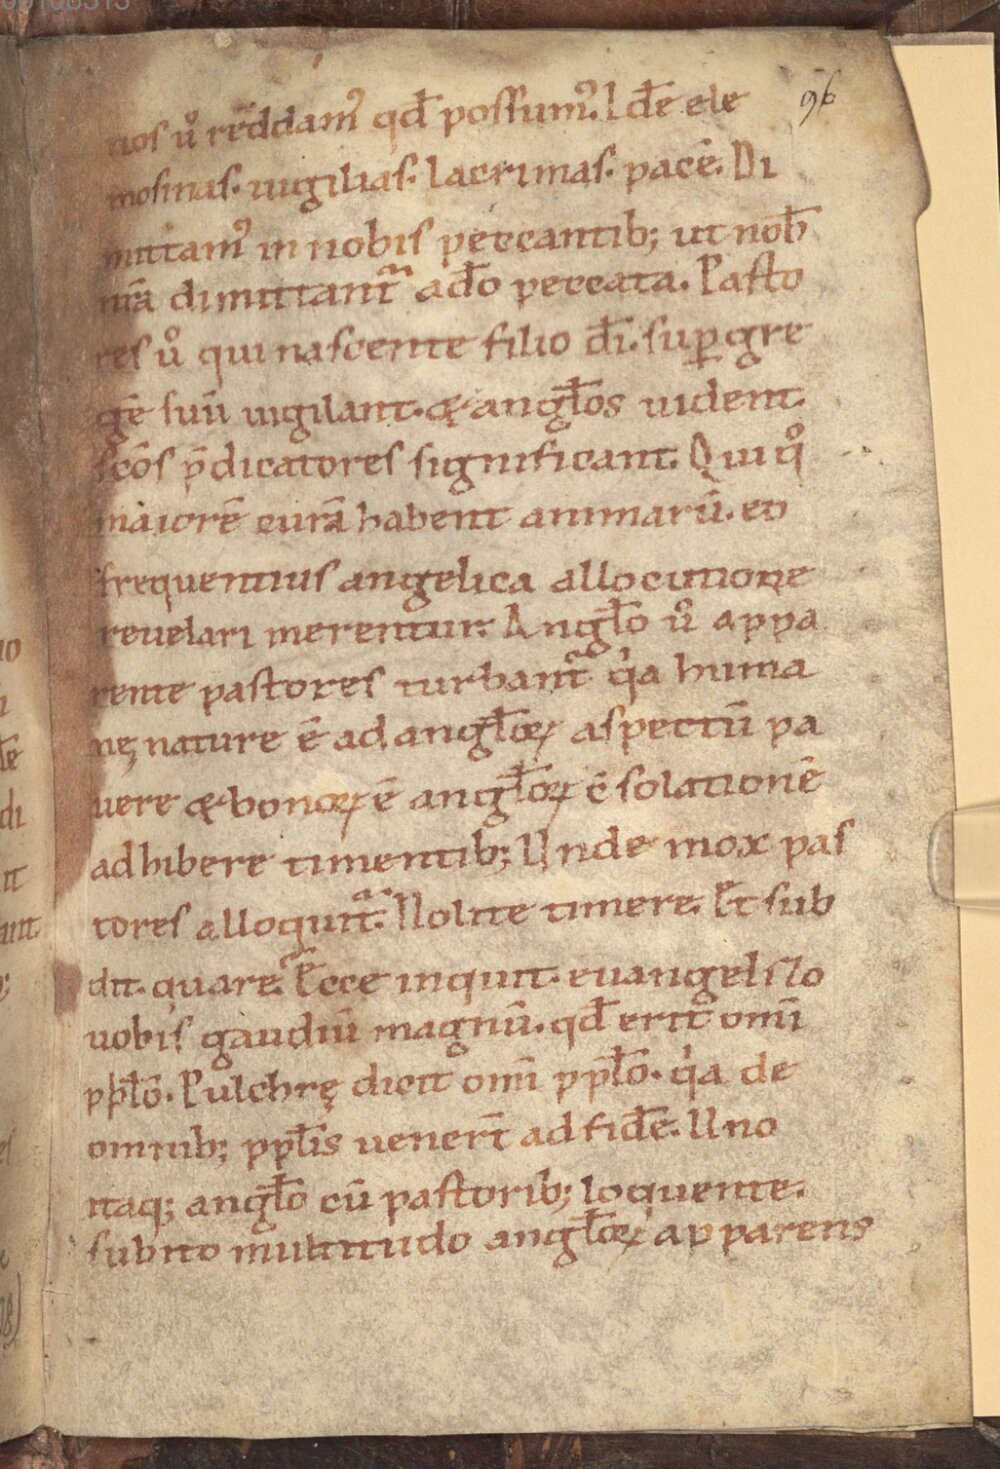 96
nos ù reddam᷒ qđ possum᷒. Id̄e ele
mosinas. uigilias. lacrimas. pacē. Di
mittam᷒ in nobis peccantib; ut nob̄
nr̄a dimittant᷑ a dō peccata. Pasto
res u̾ qui nascente filio dī. sup̱ gre
gē suū uigilant. & angłos uident.
sc̄os p̄dicatores significant. Qui q̊
maiorē curā habent animarū. eo
frequentius angelica allocutione
reuelari merentur. Angło u̾ appa
rente pastores turbant᷑ q̓a huma
nę nature ē ad angłoꝝ aspectū pa
uere & bonoꝝ ē angłoꝝ c̄solationē
adhibere timentib; Unde mox pas
tores alloquit᷑. Nolite timere. Et sub
dit. quare. Ecce inquit. euangelizo
uobis gaudiū magnū. qđ erit omī
ppło. Pulchrę dicit omī ppło. q̓a de
omnib; ppłis venert̄ ad fidē. Uno
itaq; angło cū pastorib; loquente.
subito multitudo angłoꝝ apparens